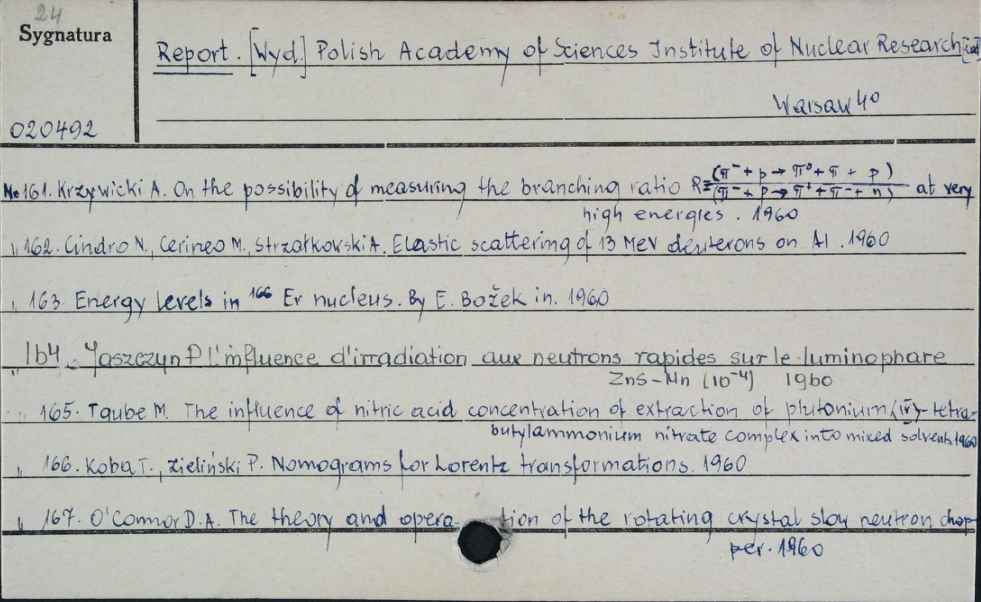 24
Sygnatura
Report. [Wyd.] Polish Academy of Sciences Institute of Nuclear Research
Warsaw 40
020492
No 161. Krzywicki A. On the possibility of measuring the branching ratio R= (π⁻ + p → π⁰ + π⁻ + p) / (π⁻ + p → π⁺ + π⁻ + n) at very
high energies. 1960
" 162. Cindro N., Cerineo M., Strzałkowski A. Elastic scattering of 13 MeV deuterons on Al. 1960
" 163 Energy levels in ¹⁶⁶ Er nucleus. By E. Božek in. 1960
" 164. Jaszczyn P L'influence d'irradiation aux neutrons rapides sur le luminophare
ZnS-Mn (10⁻⁴) 1960
" 165. Taube M. The influence of nitric acid concentration of extraction of plutonium (IV)-tetra-
butylammonium nitrate complex into mixed solvents 1960
" 166. Koba T., Zieliński P. Nomograms for Lorentz transformations. 1960
" 167. O'Connor D.A. The theory and opera tion of the rotating crystal slow neutron chop
per. 1960